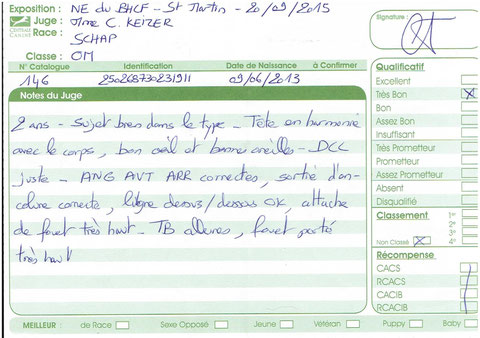 Exposition : NE du BHCF - St Martin - 20/09/2015
Juge : Mme C. KEIZER
Race : SCHAP
Classe : OM
CENTRALE CANINE
Signature :
N° Catalogue Identification Date de Naissance à Confirmer
146 250268730231911 09/06/2013
Notes du Juge
2 ans - Sujet bien dans le type - Tête en harmonie
avec le corps, bon œil et bonne oreilles - DCC
juste - ANG AVT ARR correctes, sortie d'en-
colure correcte, ligne dessus/dessous OK, attache
de fouet très haut - TB allures, fouet porté
très haut
Qualificatif
Excellent
Très Bon X
Bon
Assez Bon
Insuffisant
Très Prometteur
Prometteur
Assez Prometteur
Absent
Disqualifié
Classement 1er
2e
3e
4e
Non Classé X
Récompense
CACS
RCACS
CACIB
RCACIB
MEILLEUR : de Race Sexe Opposé Jeune Vétéran Puppy Baby